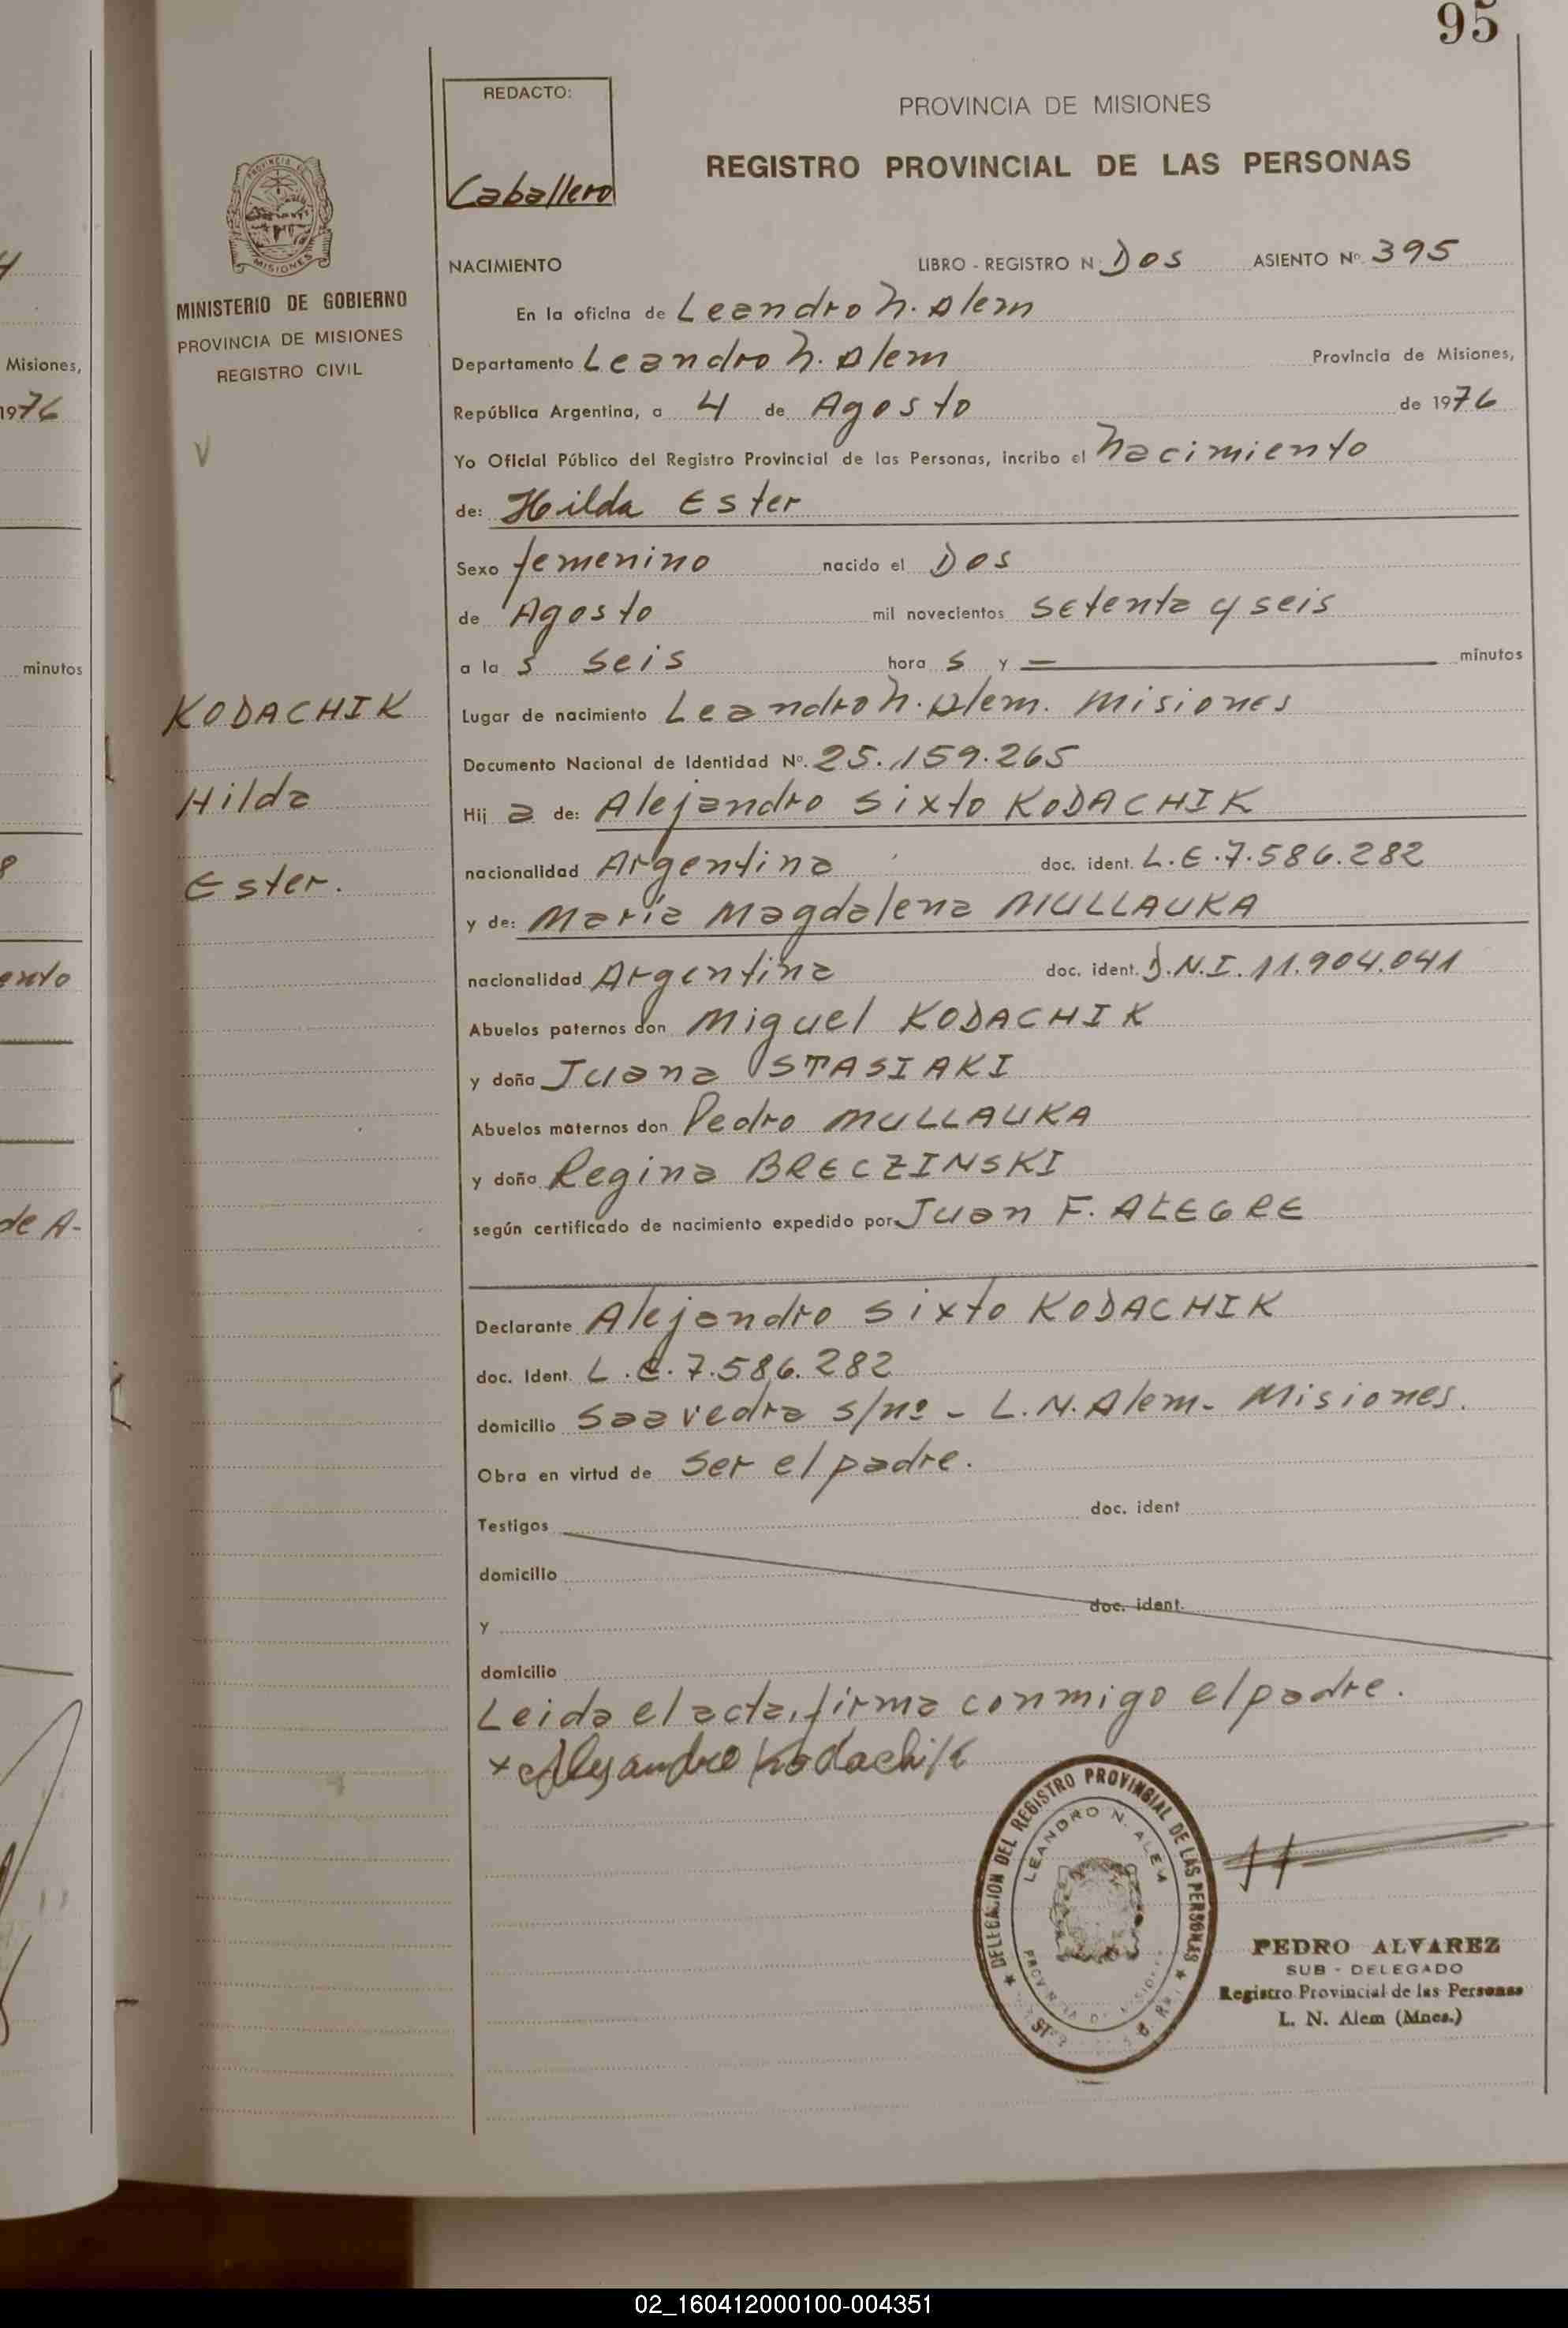 95
REDACTO:
Caballero
PROVINCIA DE MISIONES
REGISTRO PROVINCIAL DE LAS PERSONAS
PROVINCIA DE
MISIONES
MINISTERIO DE GOBIERNO
PROVINCIA DE MISIONES
REGISTRO CIVIL
NACIMIENTO LIBRO - REGISTRO N Dos ASIENTO Nº 395
En la oficina de Leandro N. Alem
Departamento Leandro N. Alem Provincia de Misiones,
República Argentina, a 4 de Agosto de 1976
Yo Oficial Público del Registro Provincial de las Personas, incribo el Nacimiento
de: Hilda Ester
Sexo femenino nacido el Dos
de Agosto mil novecientos setenta y seis
a la s seis hora s y — minutos
Lugar de nacimiento Leandro N. Alem. Misiones
Documento Nacional de Identidad Nº. 25.159.265
Hij a de: Alejandro Sixto KODACHIK
nacionalidad Argentina doc. ident. L.E.7.586.282
y de: María Magdalena MULLAUKA
nacionalidad Argentina doc. ident. D.N.I. 11.904.041
Abuelos paternos don Miguel KODACHIK
y doña Juana STASIAKI
Abuelos maternos don Pedro MULLAUKA
y doña Regina BRECZINSKI
según certificado de nacimiento expedido por Juan F. ALEGRE
Declarante Alejandro Sixto KODACHIK
doc. Ident. L.E.7.586.282
domicilio Saavedra s/nº - L.N.Alem- Misiones.
Obra en virtud de ser el padre.
Testigos doc. ident
domicilio
y doc. ident.
domicilio
Leida el acta, firma conmigo el padre.
x Alejandro Kodachik
KODACHIK
Hilda
Ester.
DELEGACION DEL REGISTRO PROVINCIAL DE LAS PERSONAS
LEANDRO N. ALEM
PEDRO ALVAREZ
SUB - DELEGADO
Registro Provincial de las Personas
L. N. Alem (Mnes.)
Misiones,
1976
minutos
de A-
02_160412000100-004351